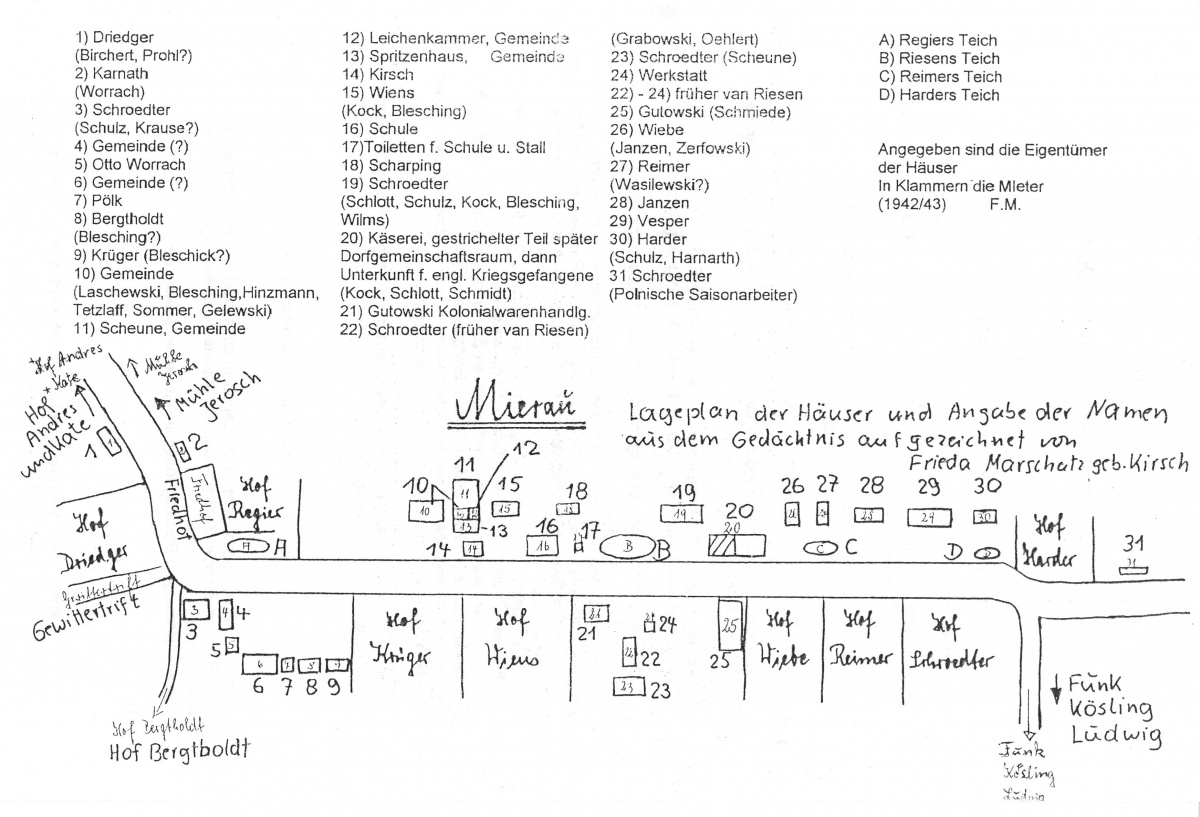 1) Driedger
(Birchert, Prohl?)
2) Karnath
(Worrach)
3) Schroedter
(Schulz, Krause?)
4) Gemeinde (?)
5) Otto Worrach
6) Gemeinde (?)
7) Pölk
8) Bergtholdt
(Blesching?)
9) Krüger (Bleschick?)
10) Gemeinde
(Laschewski, Blesching,Hinzmann,
Tetzlaff, Sommer, Gelewski)
11) Scheune, Gemeinde
12) Leichenkammer, Gemeinde
13) Spritzenhaus, Gemeinde
14) Kirsch
15) Wiens
(Kock, Blesching)
16) Schule
17)Toiletten f. Schule u. Stall
18) Scharping
19) Schroedter
(Schlott, Schulz, Kock, Blesching,
Wilms)
20) Käserei, gestrichelter Teil später
Dorfgemeinschaftsraum, dann
Unterkunft f. engl. Kriegsgefangene
(Kock, Schlott, Schmidt)
21) Gutowski Kolonialwarenhandlg.
22) Schroedter (früher van Riesen)
(Grabowski, Oehlert)
23) Schroedter (Scheune)
24) Werkstatt
22) - 24) früher van Riesen
25) Gutowski (Schmiede)
26) Wiebe
(Janzen, Zerfowski)
27) Reimer
(Wasilewski?)
28) Janzen
29) Vesper
30) Harder
(Schulz, Harnarth)
31 Schroedter
(Polnische Saisonarbeiter)
A) Regiers Teich
B) Riesens Teich
C) Reimers Teich
D) Harders Teich
Angegeben sind die Eigentümer
der Häuser
In Klammern die MIeter
(1942/43) F.M.
Hof Andres
+ Kate
Mühle
Jerosch
Hof
Andres
und Kate
Mühle
Jerosch
Mieraŭ
Lageplan der Häuser und Angabe der Namen
aus dem Gedächtnis aufgezeichnet von
Frieda Marschatz geb. Kirsch
1
2
Friedhof
Friedhof
Hof
Regier
A A
10 10
11 11
12
13 13
14 14
15 15
16 16
17
18 18
19 19
20 20
B B
26
27
28 28
29 29
30 30
C C
D D
Hof
Harder
31 31
Hof
Driedger
Gewittertrift
Gewittertrift
3 3
4 4
5 5
6 6
7 7
8 8
9 9
Hof
Krüger
Hof
Wiens
21 21
22 22
23 23
24
25 25
Hof
Wiebe
Hof
Reimer
Hof
Schroedter
Hof Bergtholdt
Hof Bergtboldt
Fŭnk
Kösling
Lŭdwig
Fŭnk
Kösling
Lŭdwig